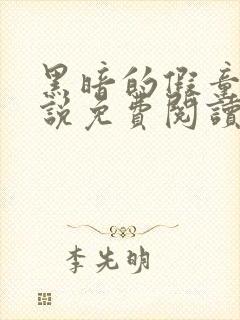 黑暗的假童
說免費閱讀
李先明